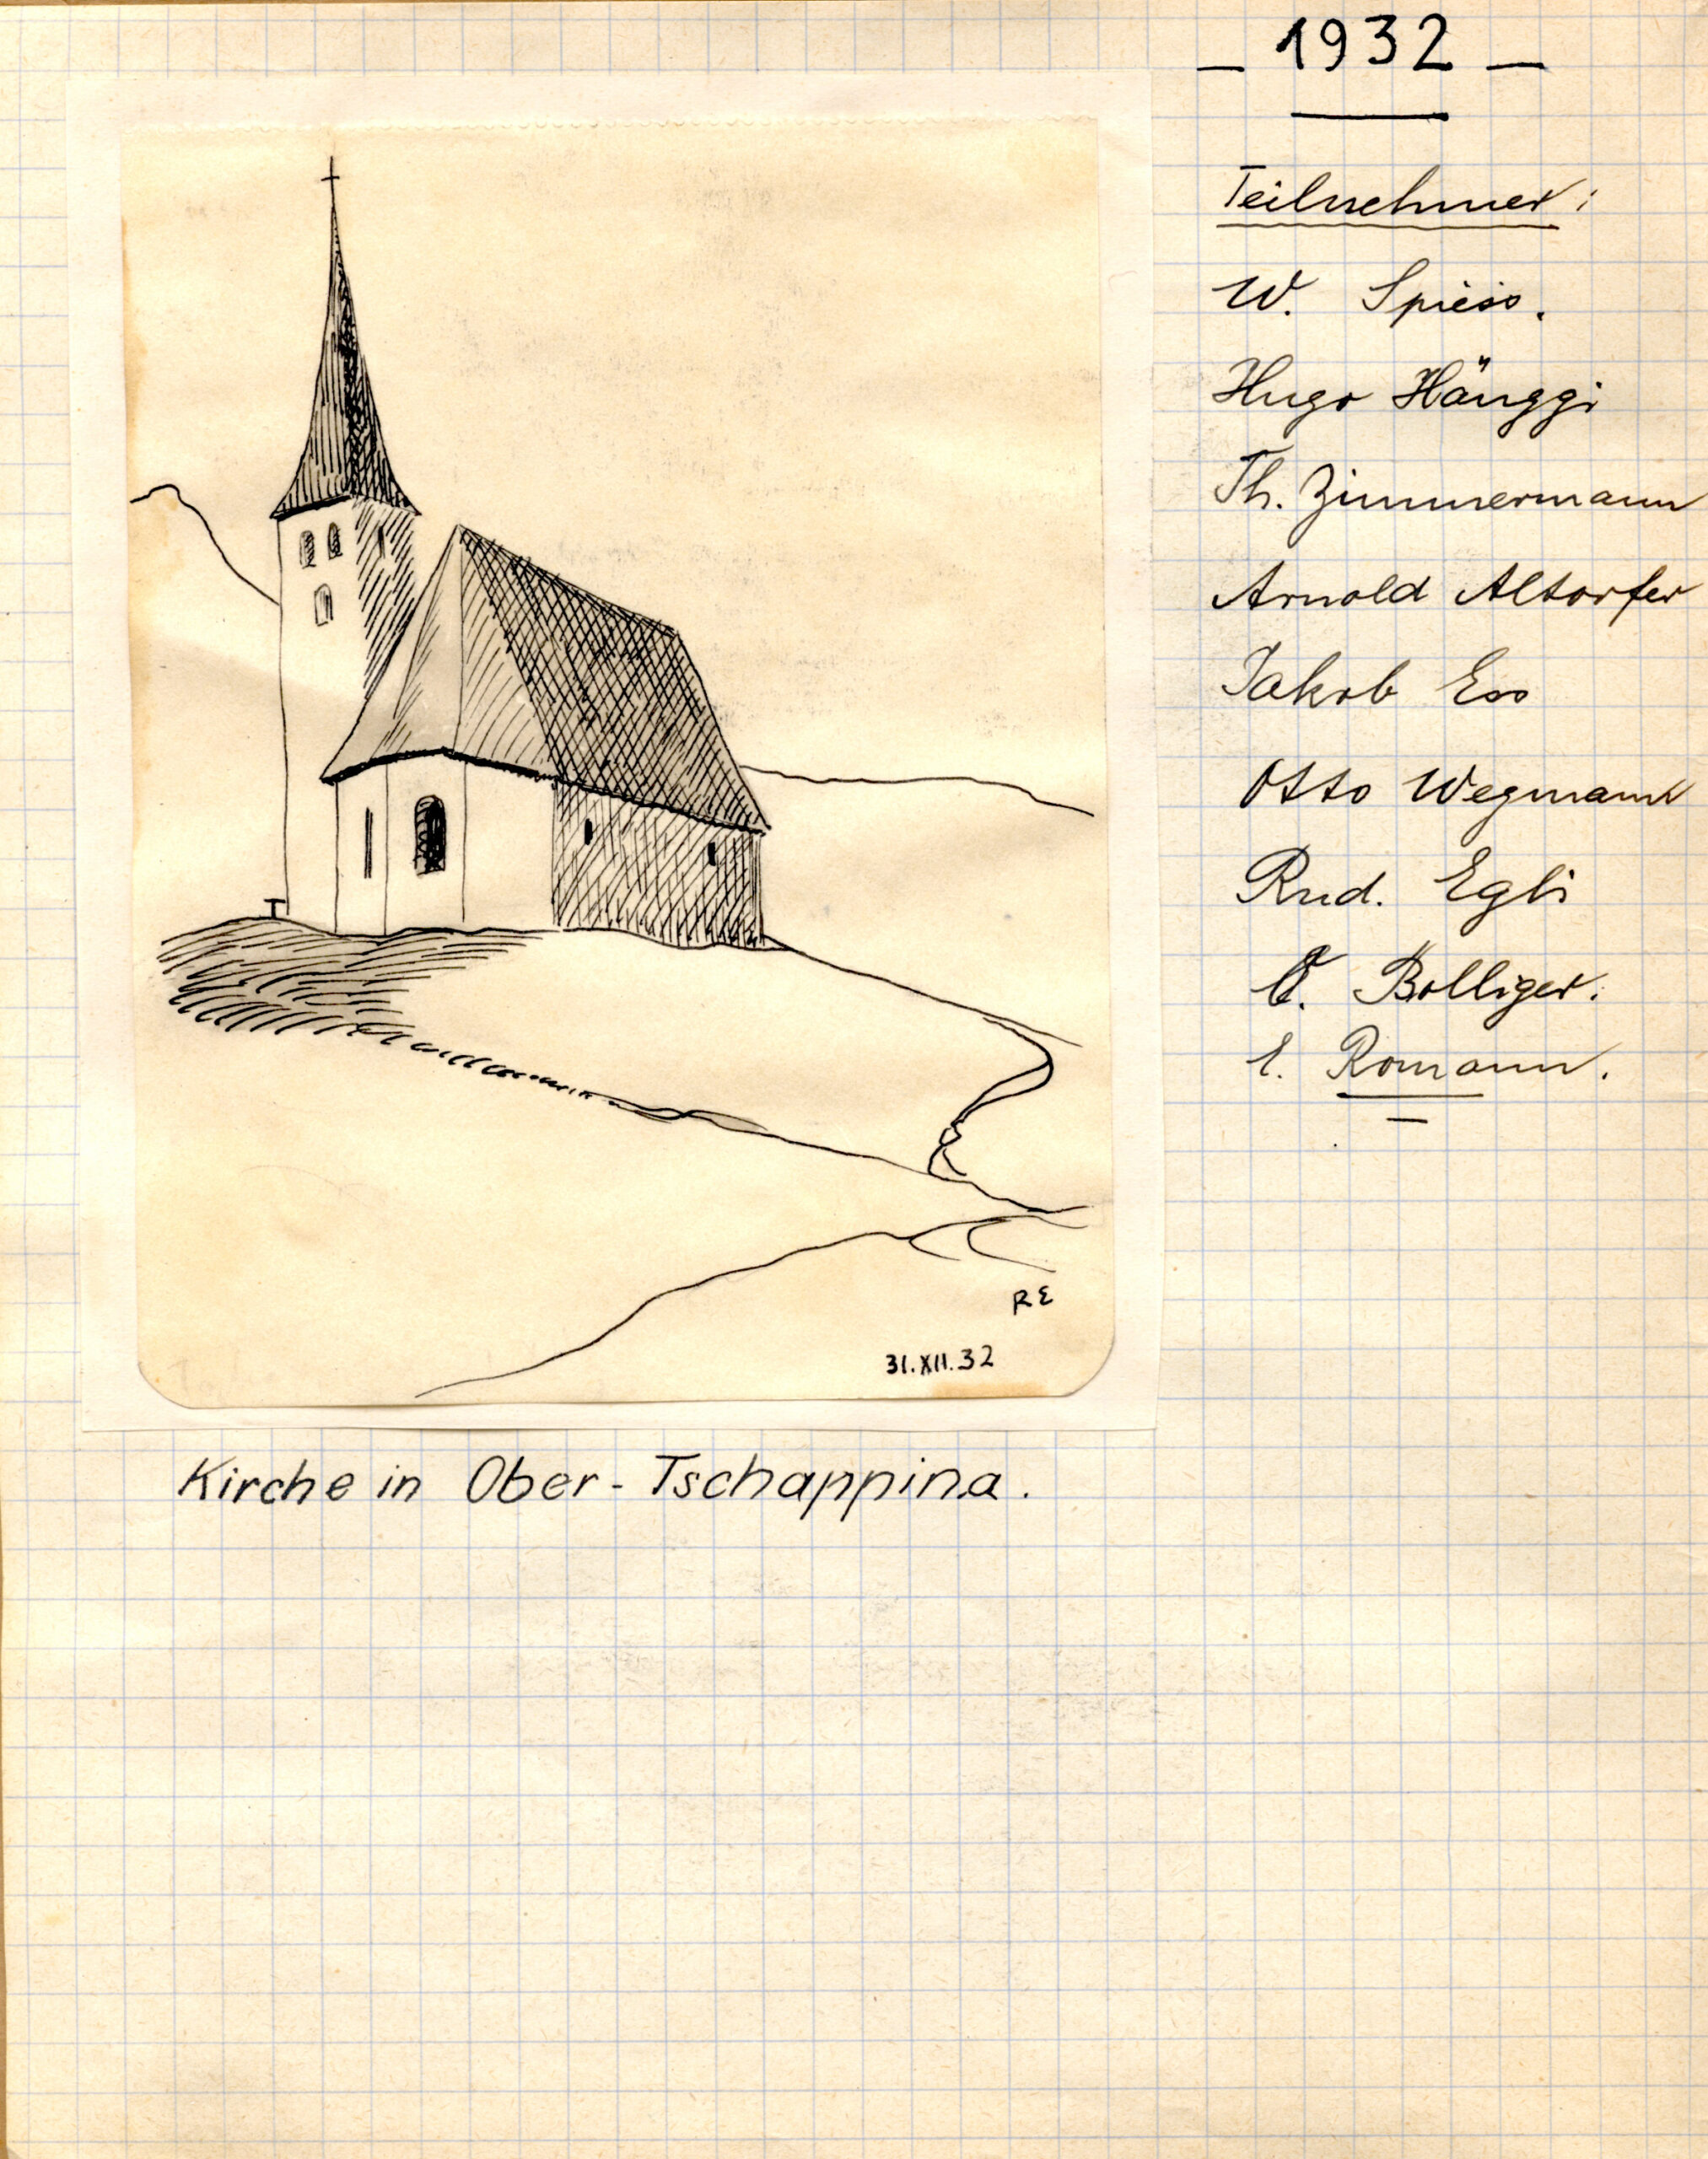 – 1932 –
Teilnehmer:
W. Spiess.
Hugo Hänggi
Th. Zimmermann
Arnold Altorfer
Jakob Ess
Otto Wegmann
Rud. Egli
Bolliger.
E. Romann.
RE
31.XII.32
Kirche in Ober-Tschappina.